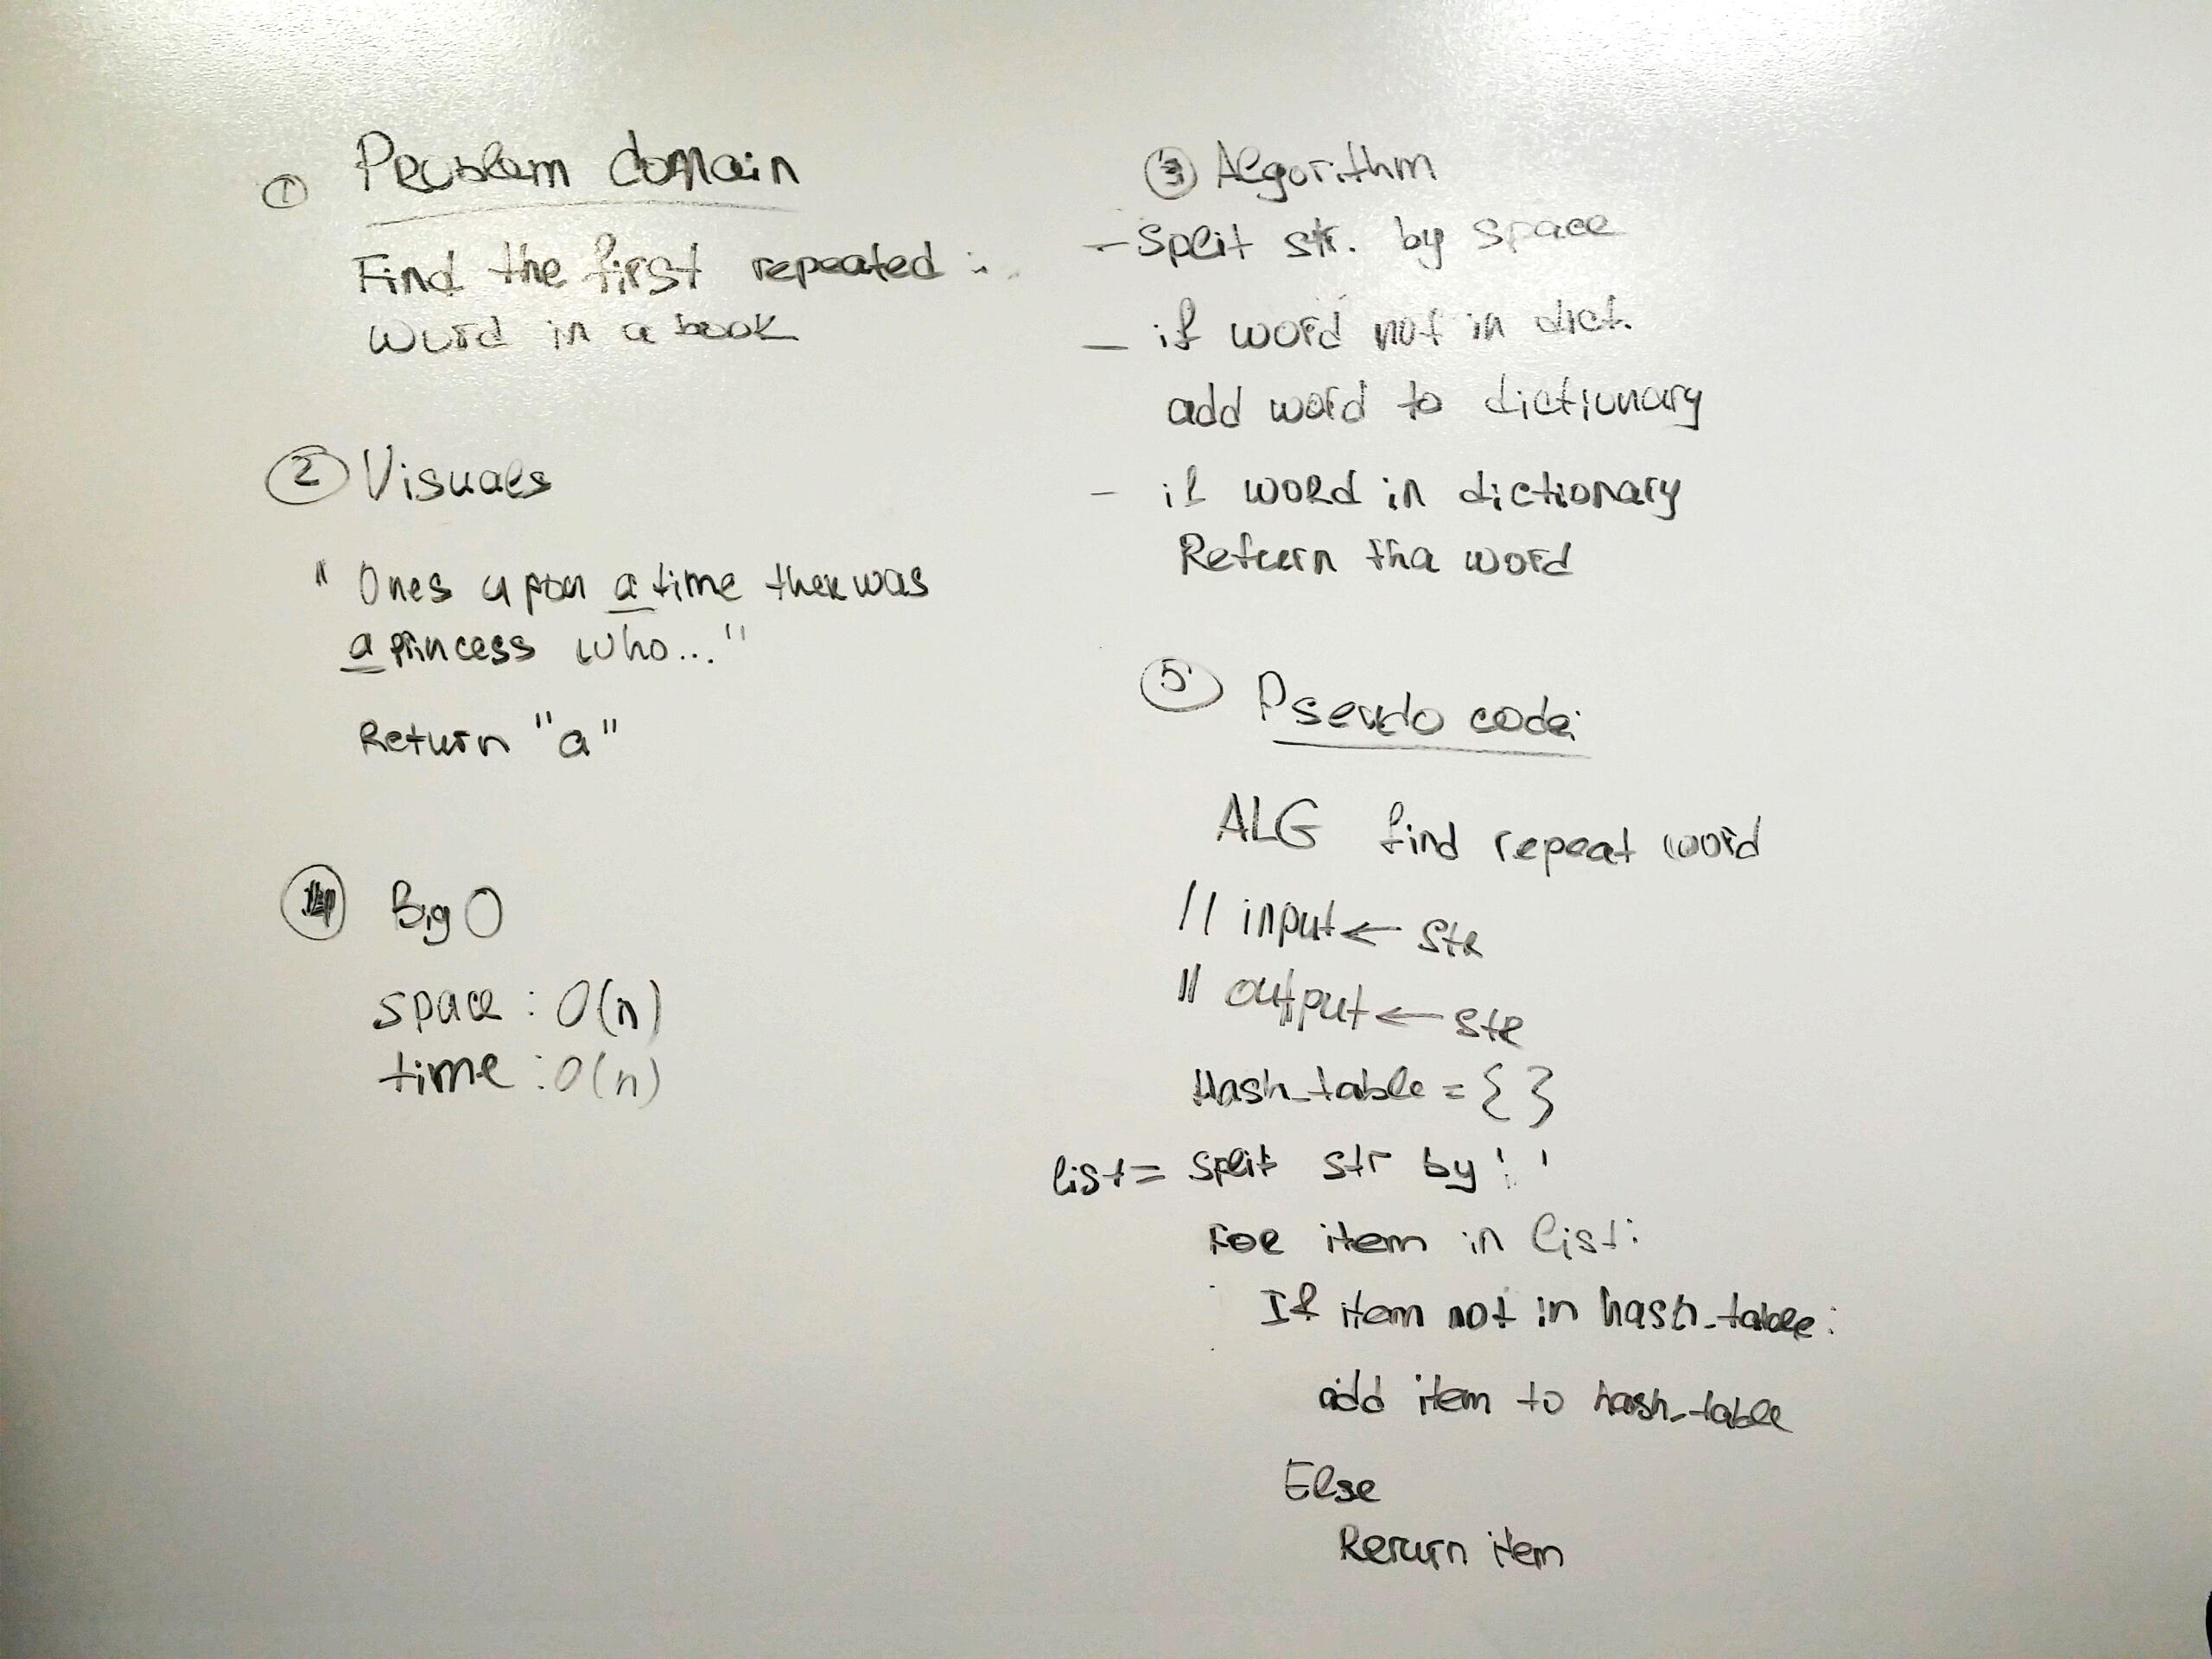 ① Problem domain
Find the first repeated
word in a book
② Visuals
" Ones upon a time ther was
a princess who... "
Return "a"
④ Big O
space : O(n)
time : O(n)
③ Algorithm
- Split str. by space
- if word not in dict.
add word to dictionary
- if word in dictionary
Return tha word
⑤ Pseudo code:
ALG find repeat word
// input ← str
// output ← str
Hash_table = { }
list = split str by ' '
For item in list:
If item not in hash_table:
add item to hash_table
Else
Rerurn item